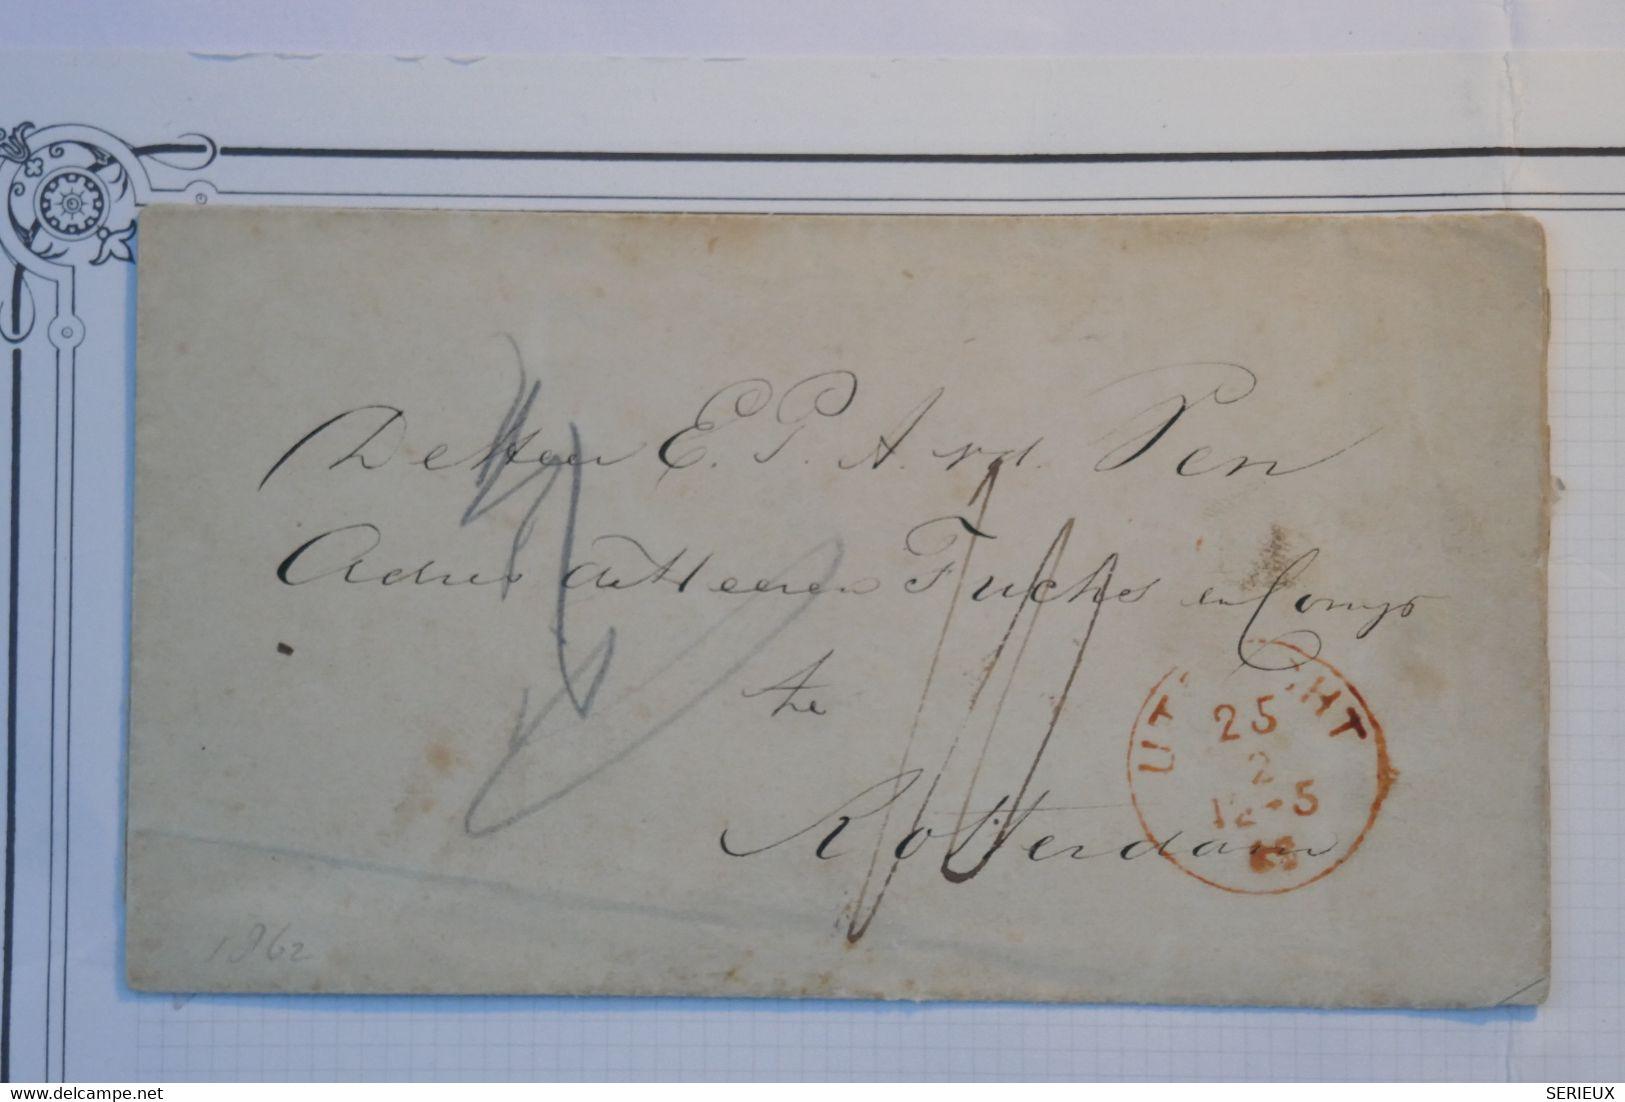 De Heer E. P. A. v. d. Pen
Adres de Heeren Fuchs en Comp
te
Rotterdam
UT CHT
25
2
12-5
1862
delcampe.net
SERIEUX